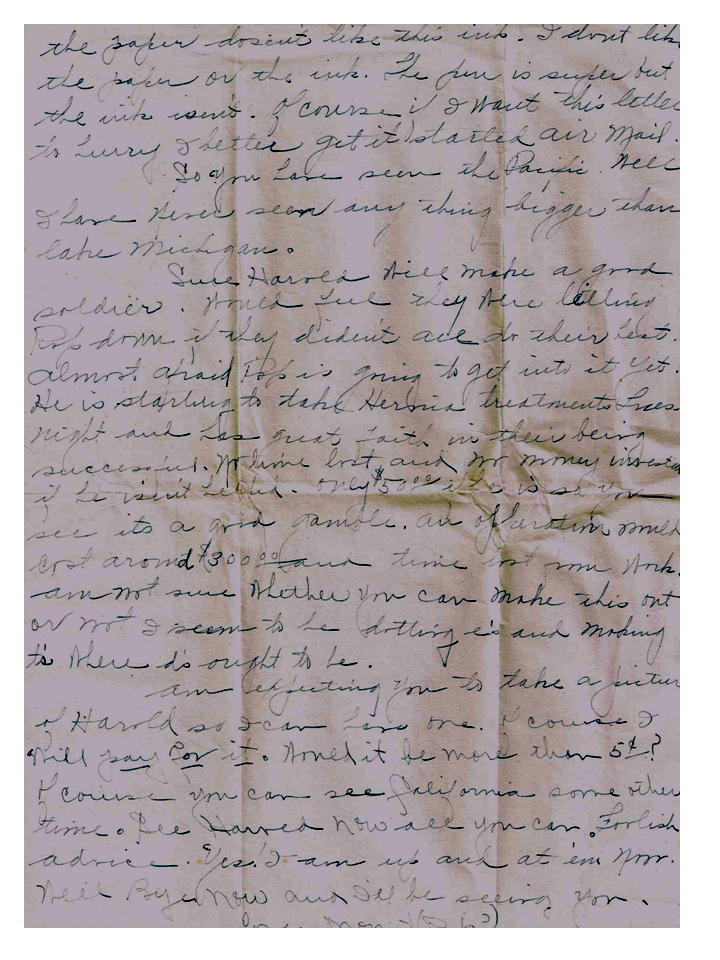 the paper dosen't like this ink. I dont like
the paper or the ink. The pen is super but
the ink isent. Of course if I want this letter
to hurry I better get it started air mail.
So you have seen the Pacific. Well
I have never seen any thing bigger than
lake Michigan.
Sure Harold will make a good
soldier. Would feel they were letting
Pop down if they dident all do their best.
Almost afraid Pop is going to get into it yet.
He is starting to take Hernia treatments Tues.
night and has great faith in their being
successful. No time lost and no money invested
if he isent helped. Only $50.00 if he is so you
see its a good gamble. An operation would
cost around $300.00 and time lost from work.
am not sure whether you can make this out
or not I seem to be dotting e's and making
t's where d's ought to be.
am expecting you to take a picture
of Harold so I can have one. Of course I
will pay for it. Would it be more than 5¢?
Of course you can see California some other
time. See Harold now all you can. Foolish
advice. Yes! I am up and at 'em now.
Well Bye now and I'll be seeing you.